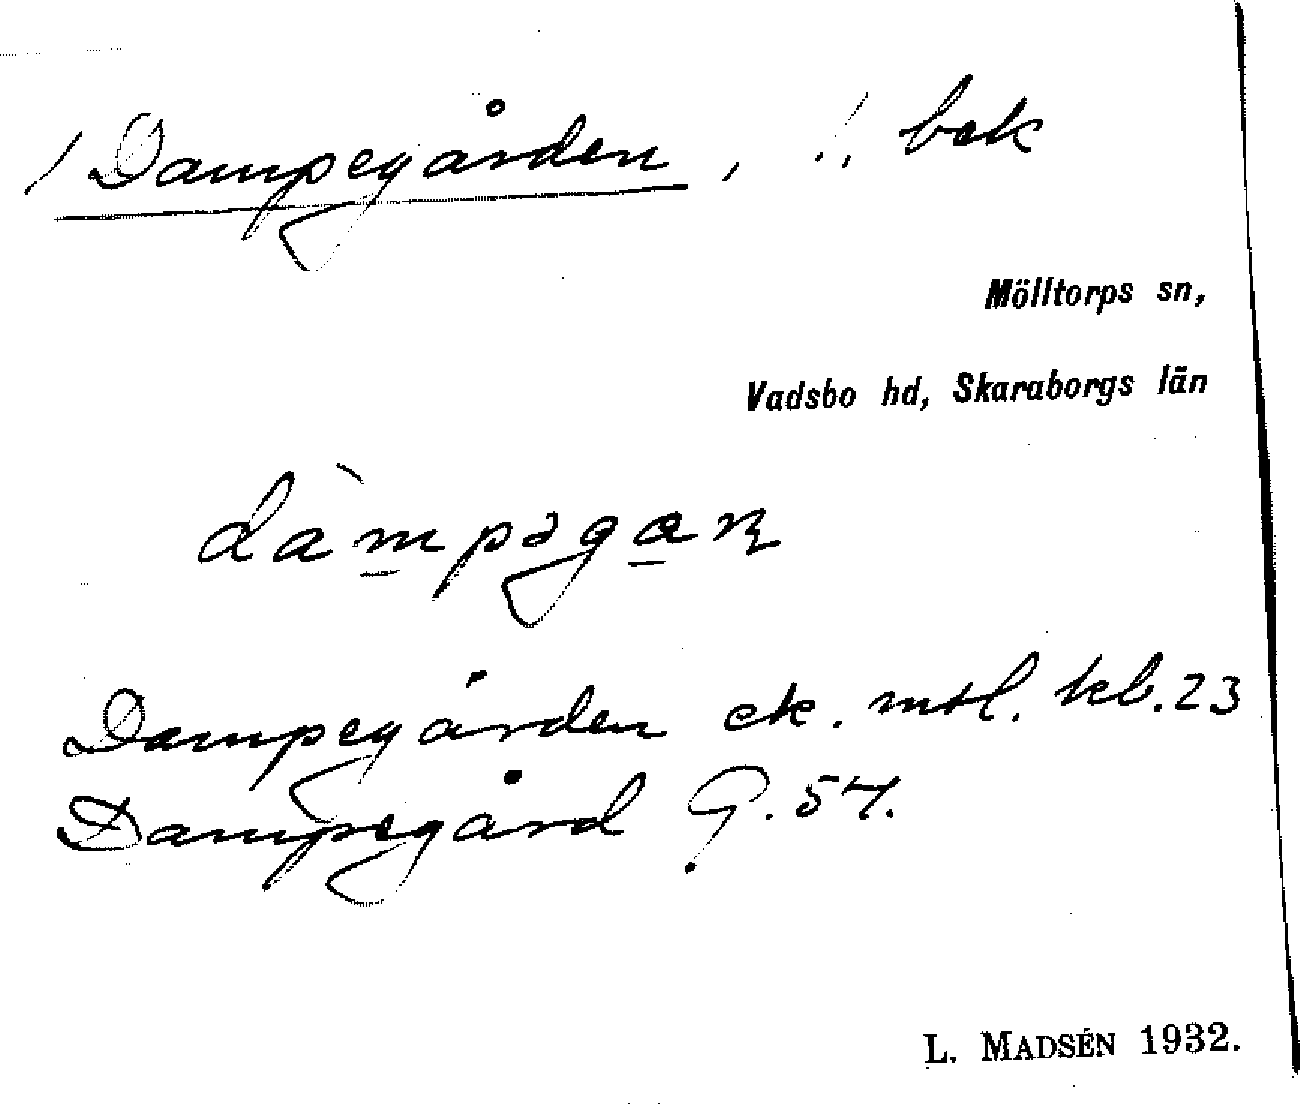 / Dampegården, !, bek
Mölltorps sn,
Vadsbo hd, Skaraborgs län
Dampegården ek. mtl. kb. 23
Dampegård G. 54.
L. MADSÉN 1932.